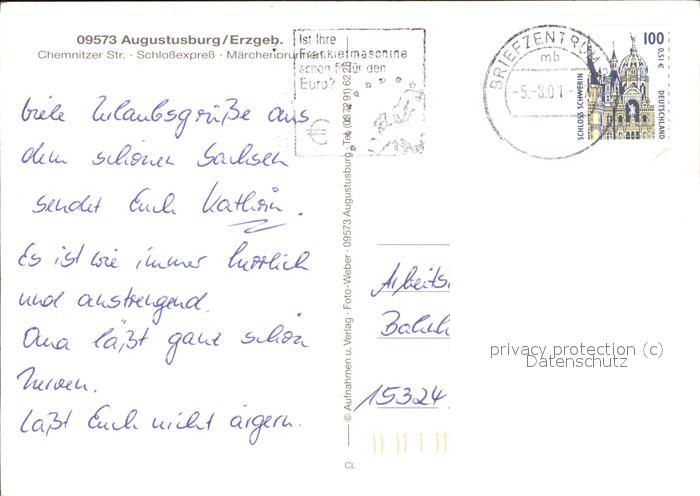 09573 Augustusburg/Erzgeb.
Chemnitzer Str. · Schloßexpreß · Märchenbrunnen
Ist Ihre
Frankiermaschine
schon fit für den
Euro?
€
BRIEFZENTRUM
mb
-5.-8.01-
100
0,51€
SCHLOSS SCHWERIN
DEUTSCHLAND
viele Urlaubsgrüße aus
dem schönen Sachsen
sendet Euch Kathrin.
Es ist wie immer herrlich
und anstrengend.
Oma läßt ganz schön
nerven.
Laßt Euch nicht ärgern.
© Aufnahmen u. Verlag · Foto-Weber · 09573 Augustusburg · Tel.
CL
Arbeits
Bahnh
15324
privacy protection (c)
Datenschutz